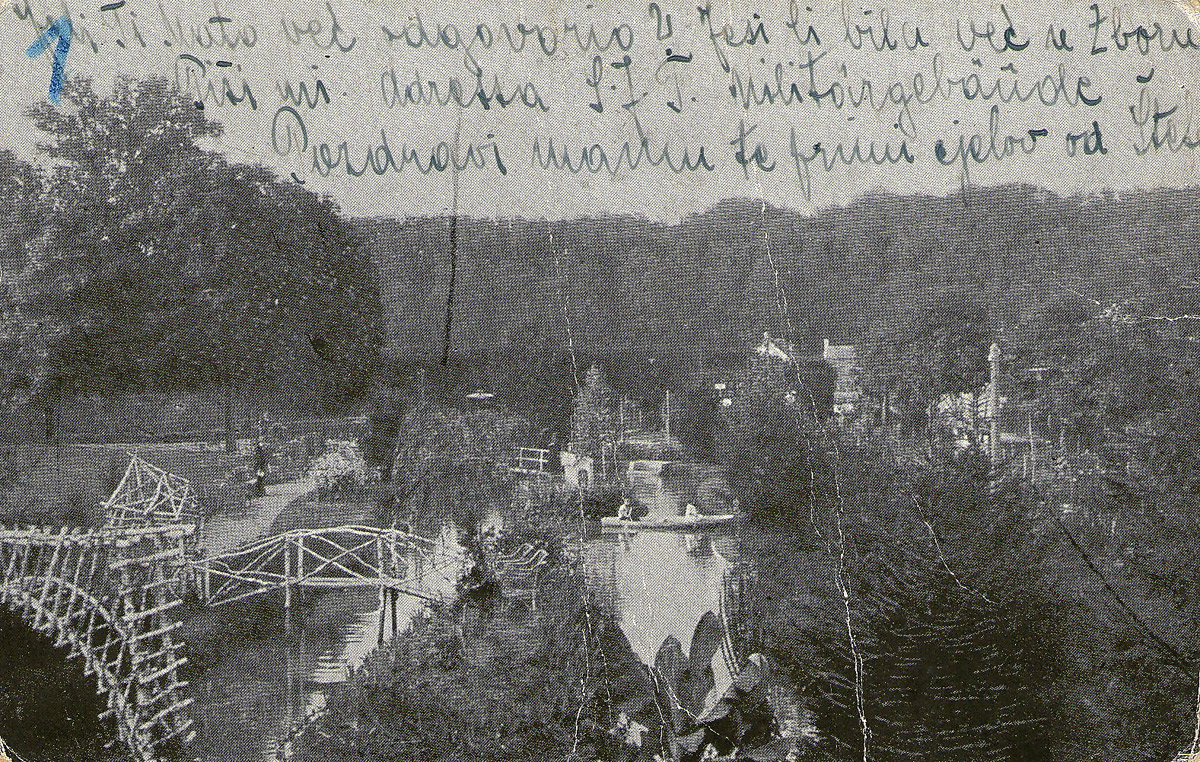 1
Ti Mato već odgovorio? Jesi li bila već u Zboru
Piši mi. Adressa S.J.F. Militärgebäude
Pozdravi mamu te primi cjelov od